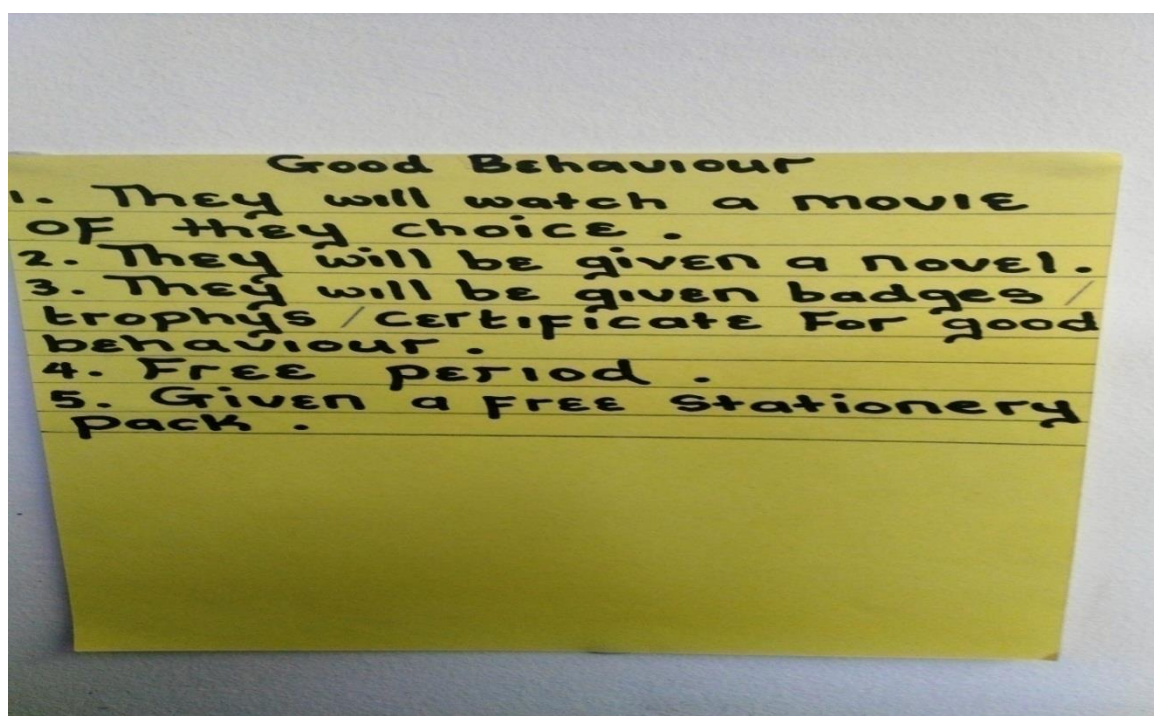 Good Behaviour
1. They will watch a movie
of they choice.
2. They will be given a novel.
3. They will be given badges /
trophys / certificate for good
behaviour.
4. Free period.
5. Given a free stationery
pack.